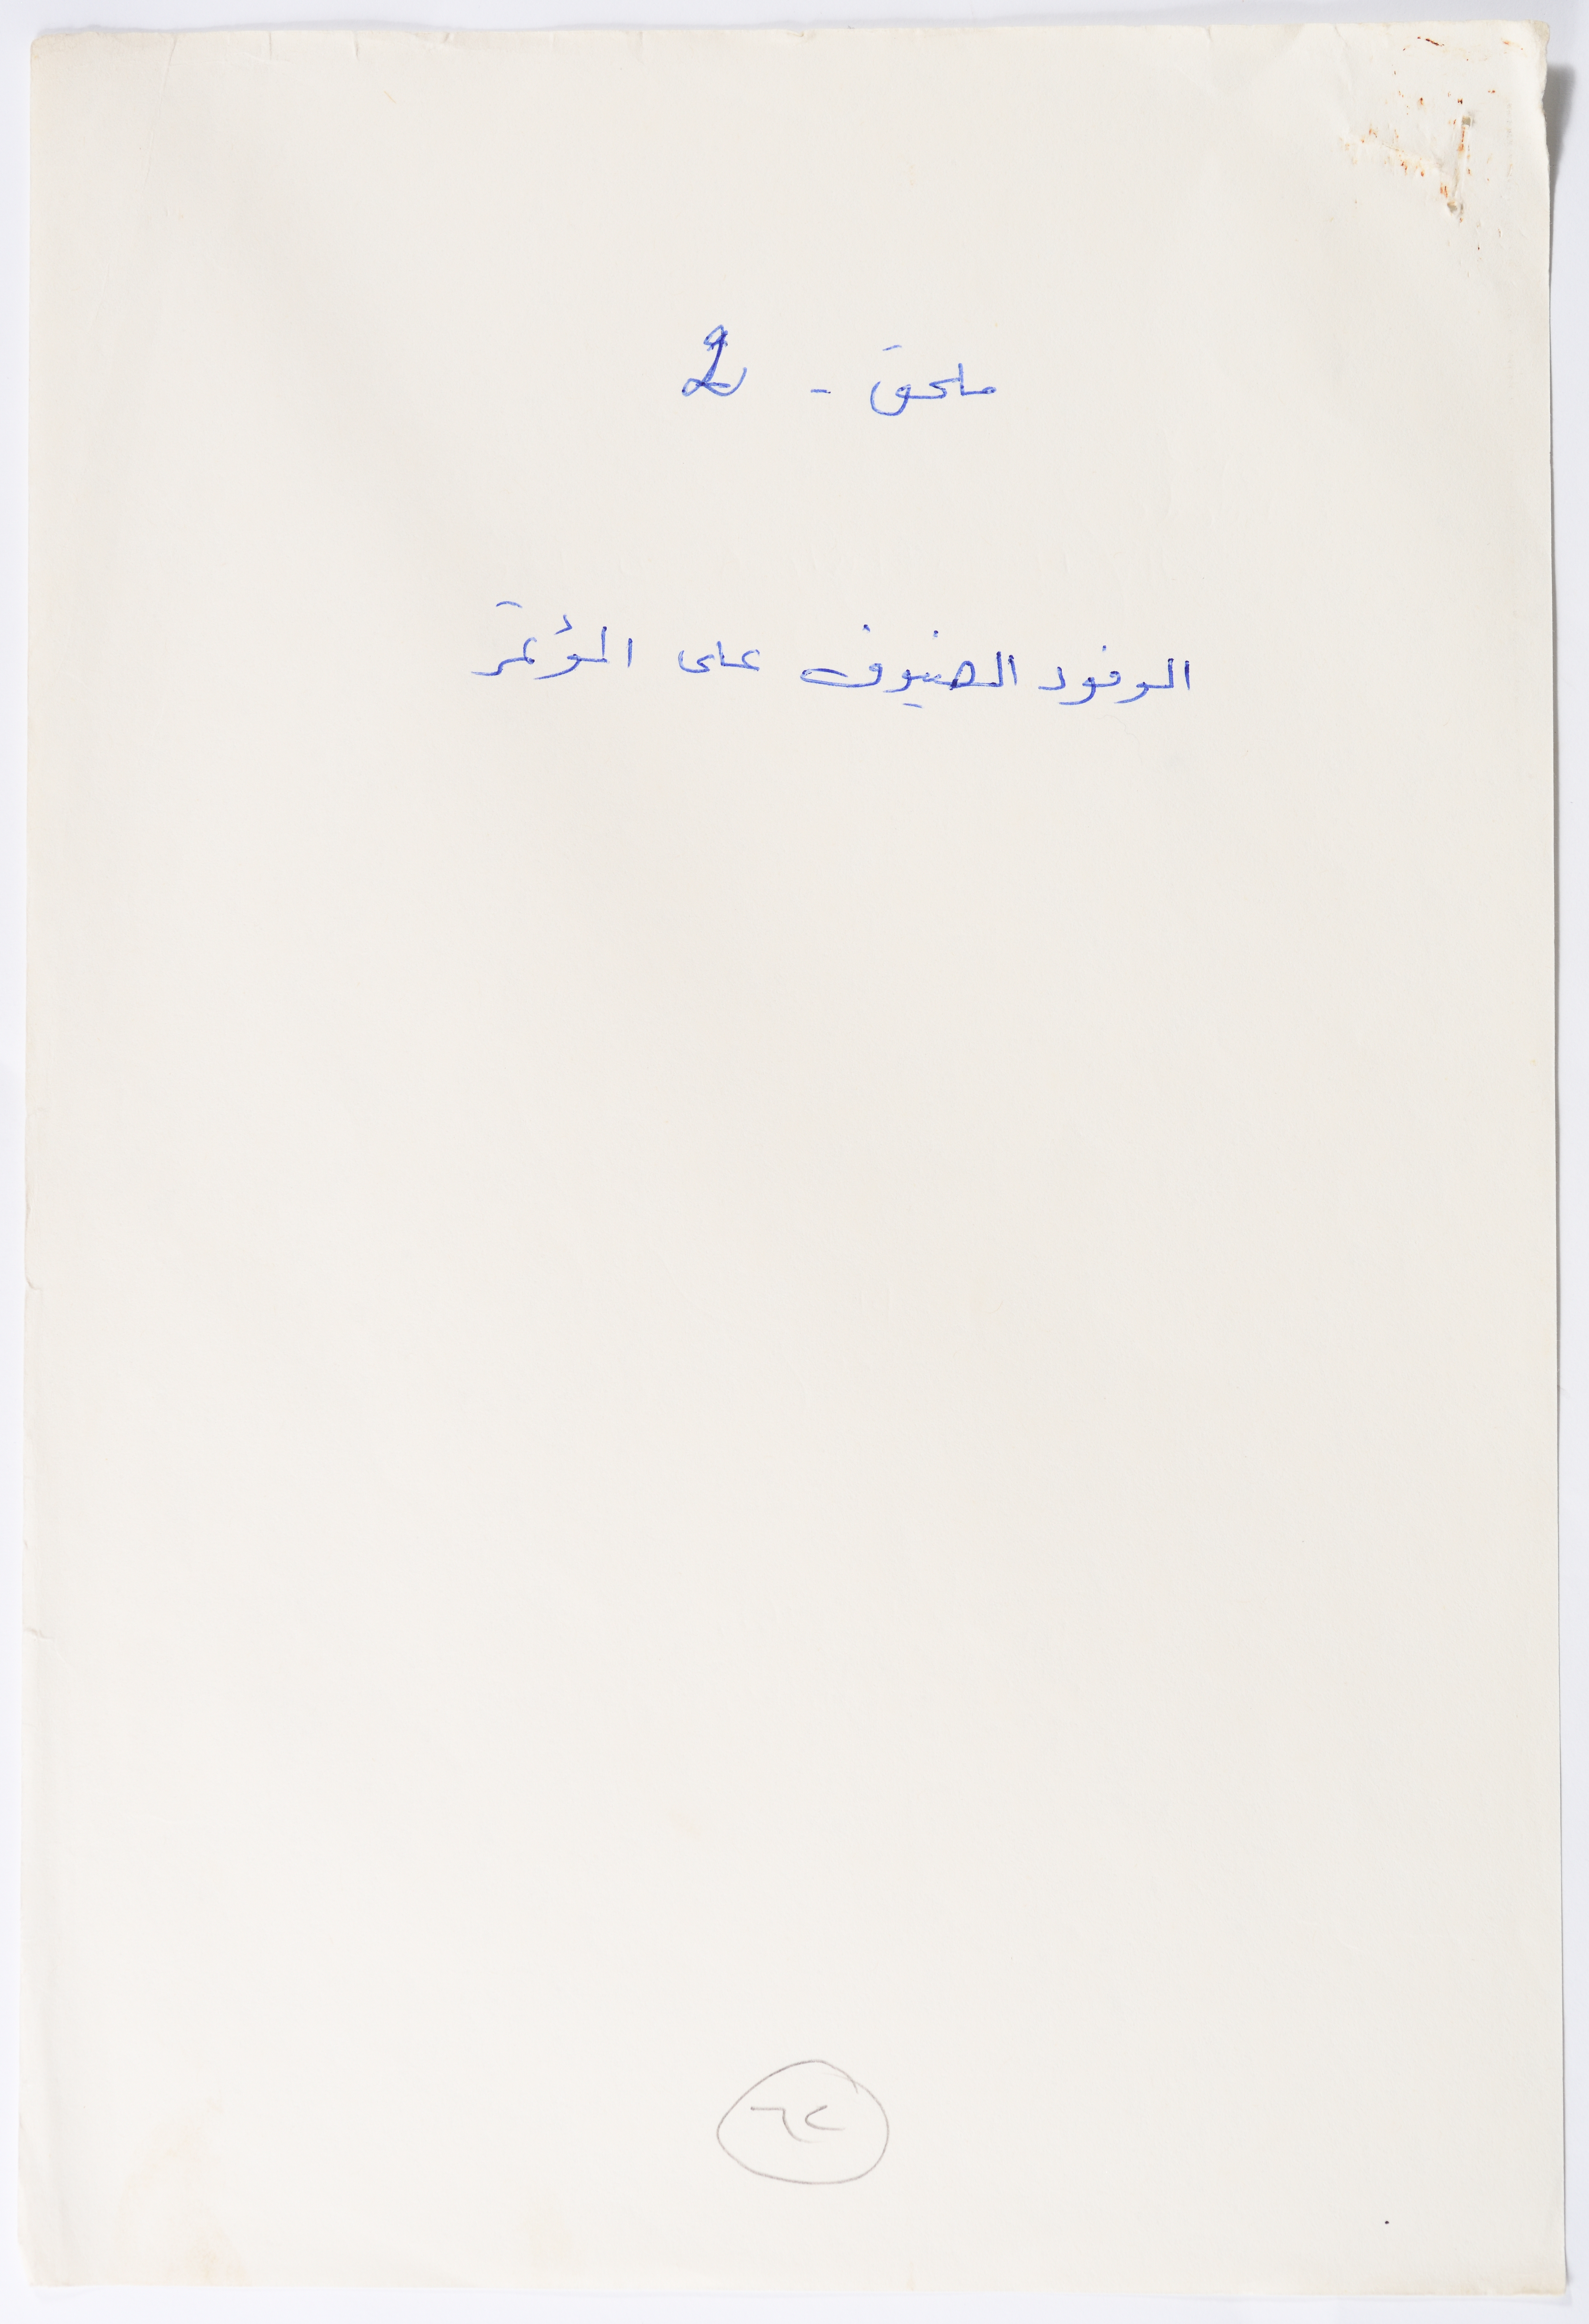 ملحق - 2
الوفود الضيوف على المؤتمر
٦٤